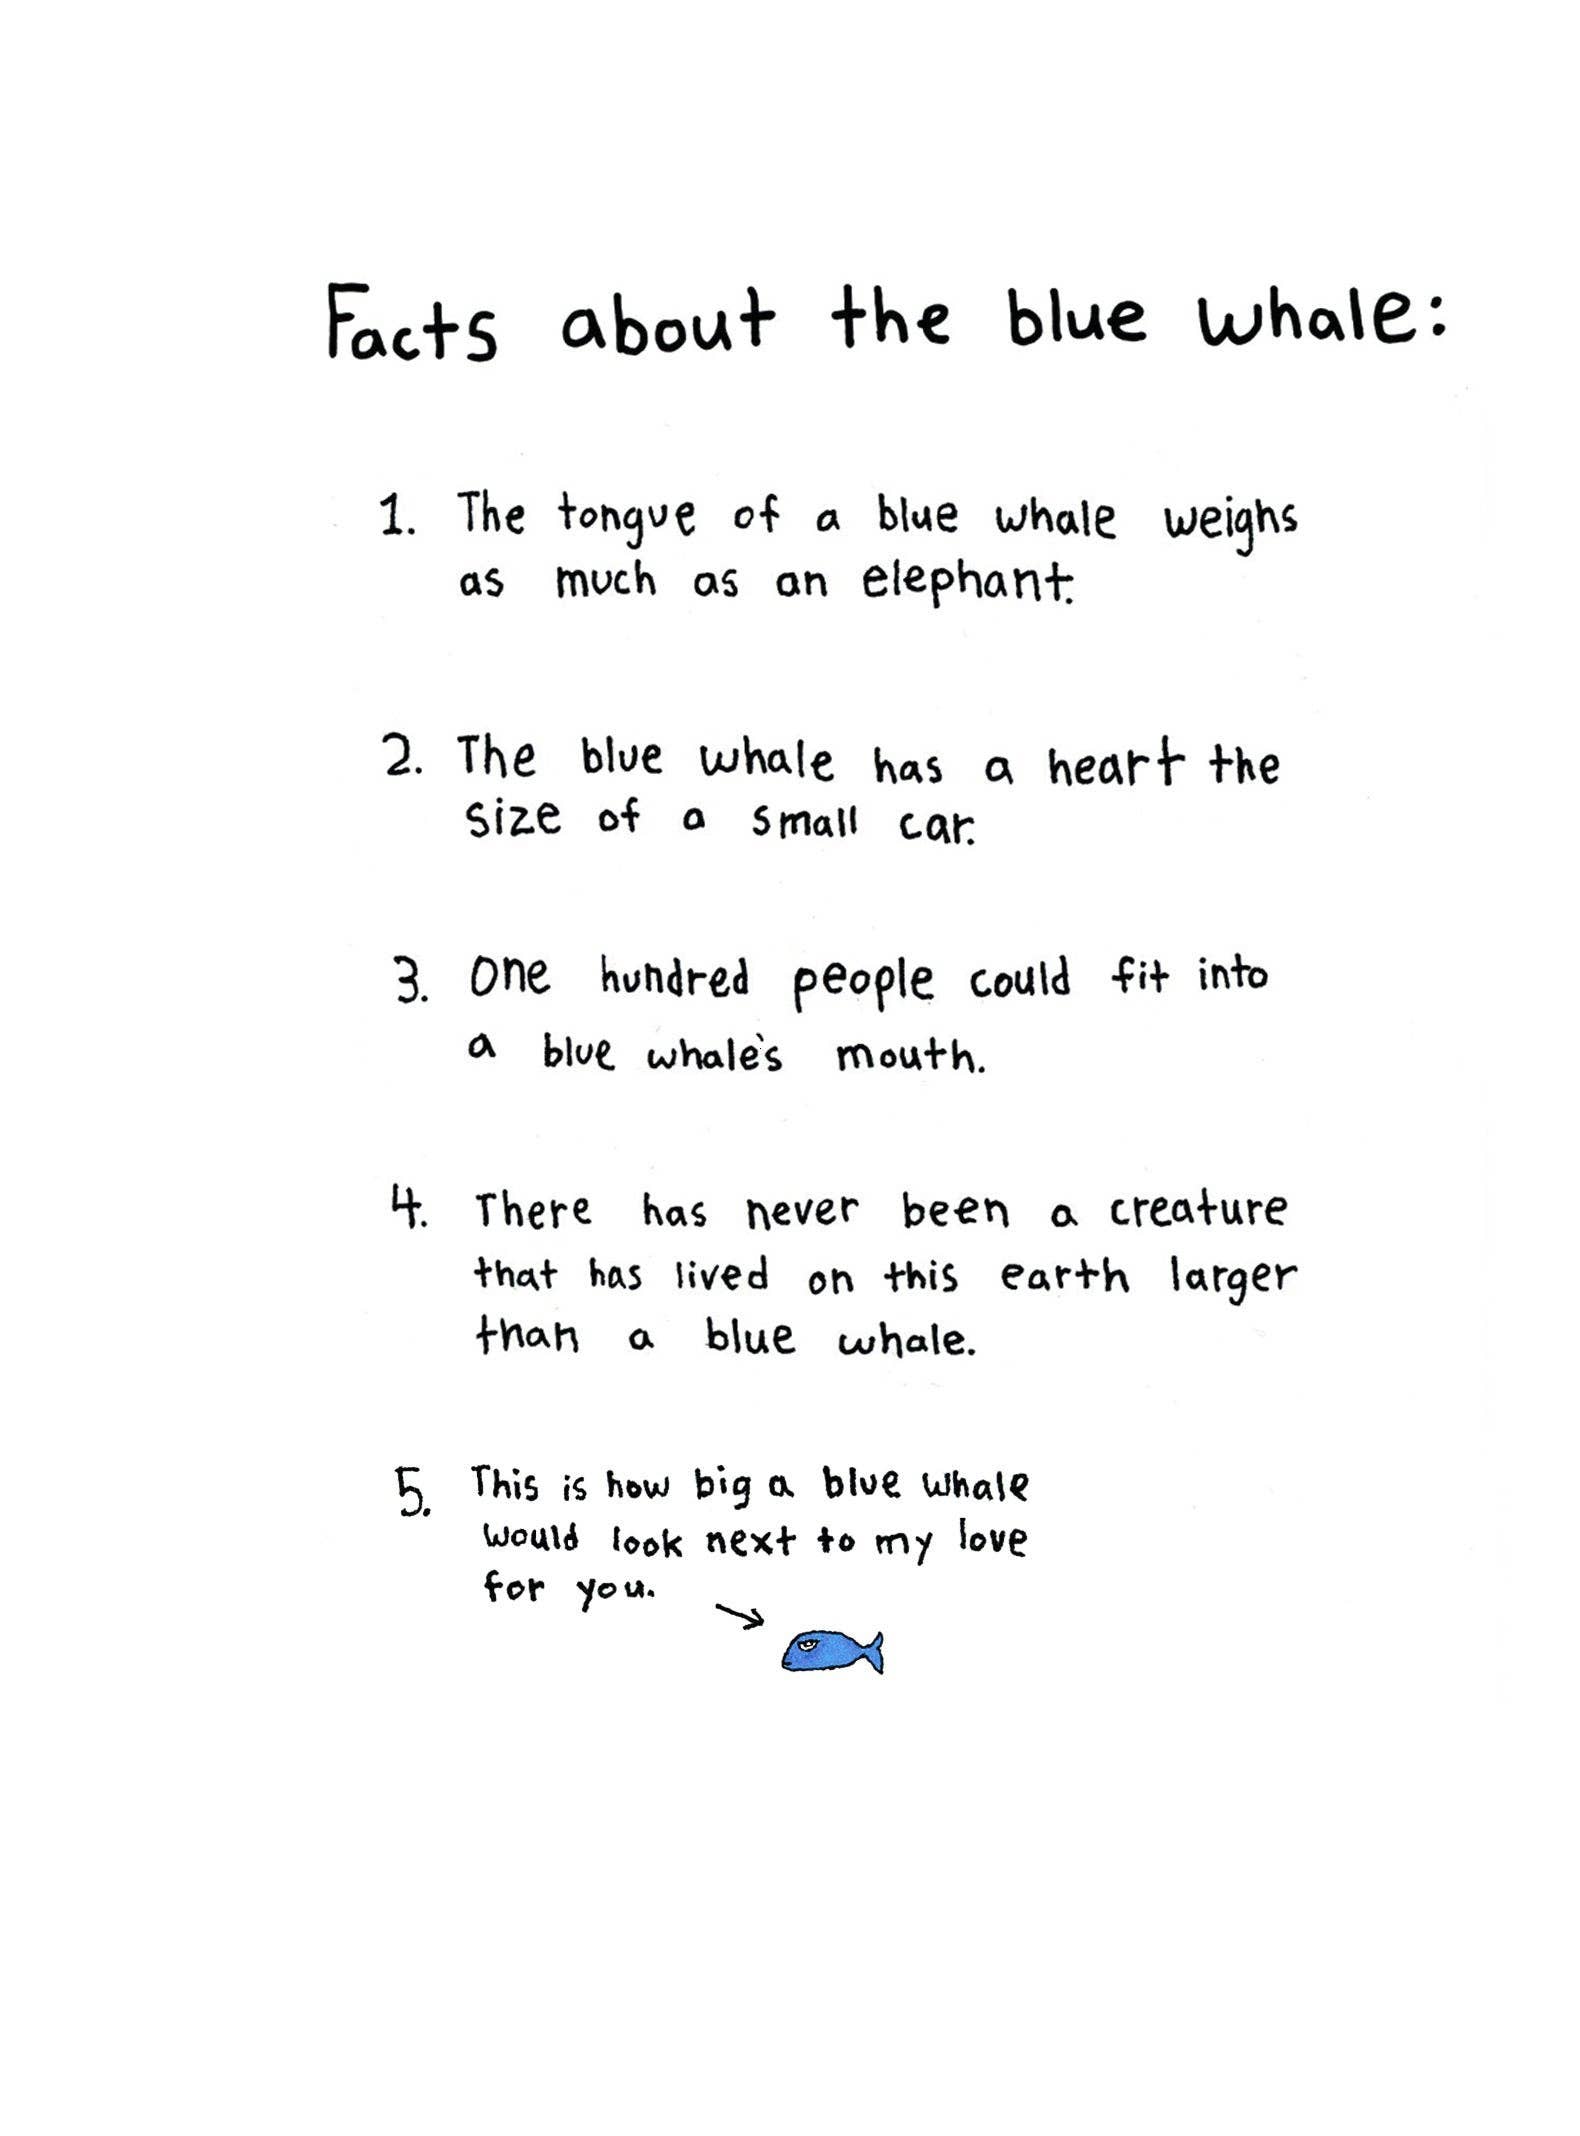 Facts about the blue whale:
1. The tongue of a blue whale weighs
as much as an elephant.
2. The blue whale has a heart the
size of a small car.
3. One hundred people could fit into
a blue whale's mouth.
4. There has never been a creature
that has lived on this earth larger
than a blue whale.
5. This is how big a blue whale
would look next to my love
for you.